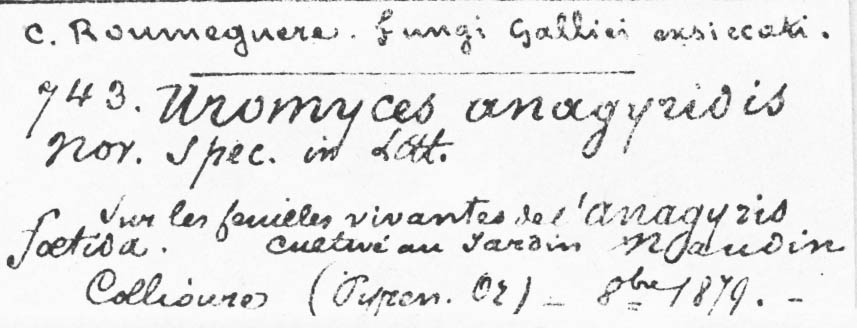 C. Roumeguere. Fungi Gallici exsiccati.
743. Uromyces anagyridis
Nov. Spec. in Litt.
Sur les feuilles vivantes de l'anagyris
foetida. cultivé au Jardin Naudin
Collioures (Pyren. Or) _ 8bre 1879. _